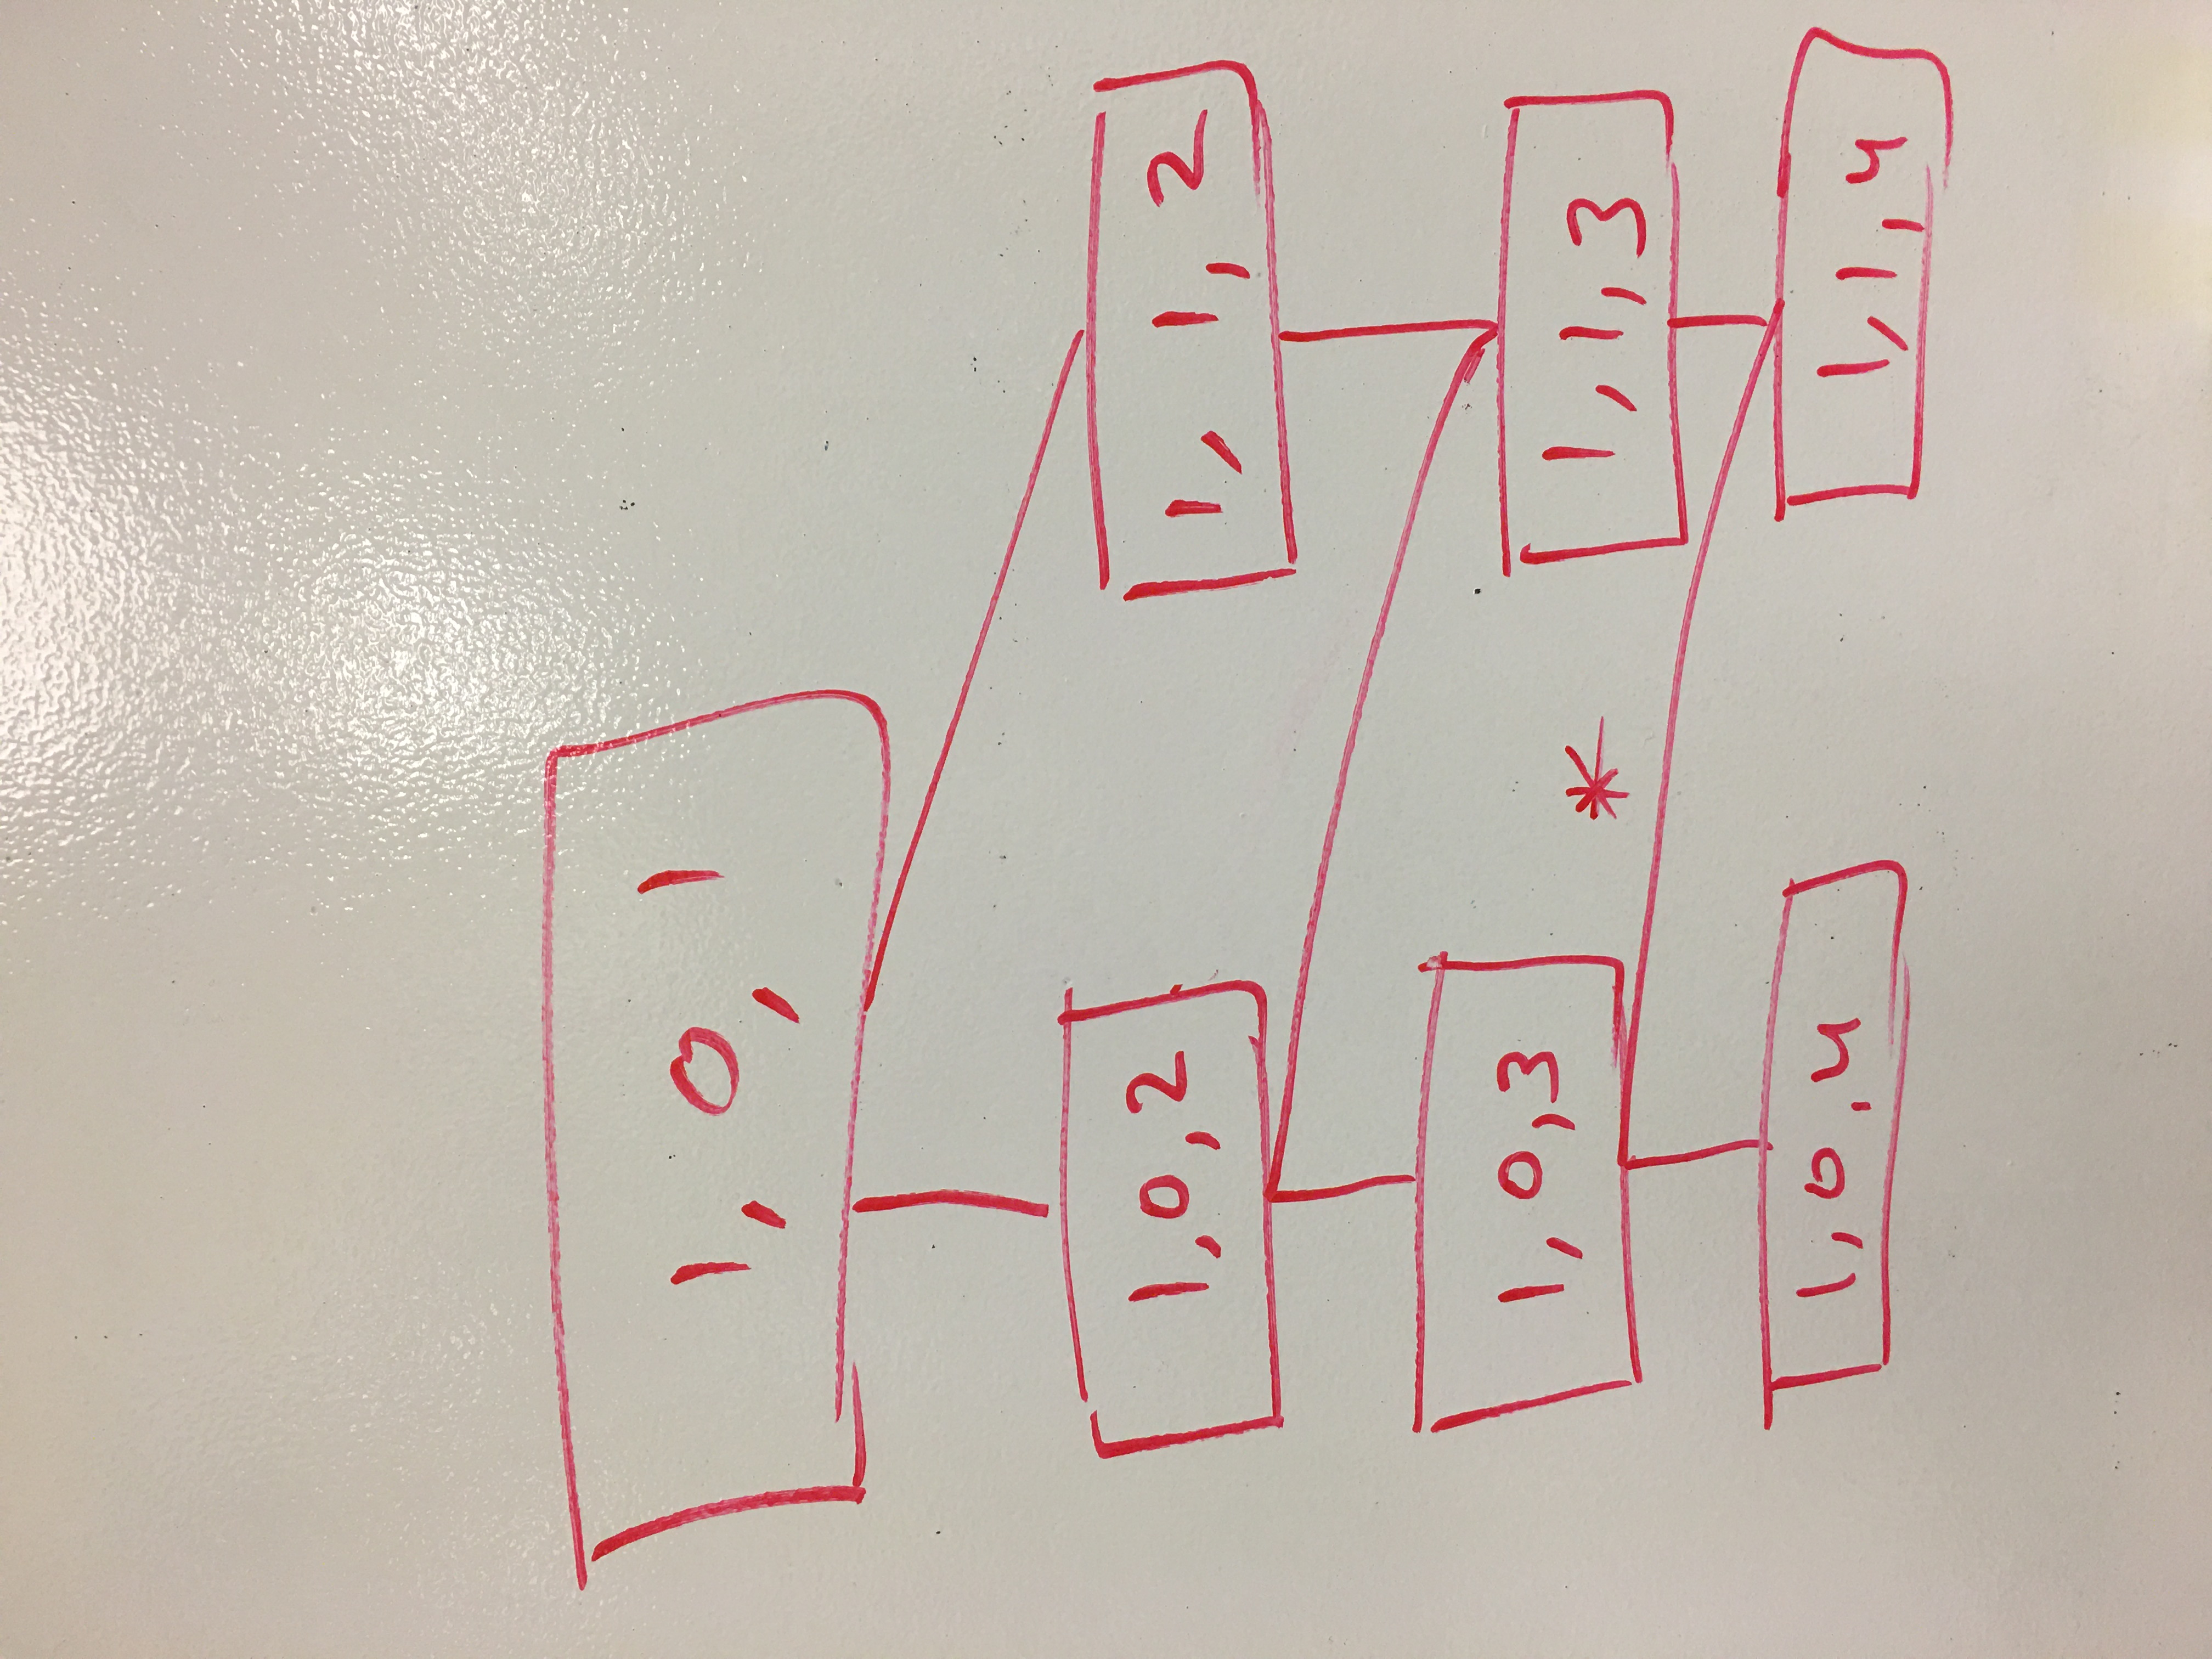 1, 0, 1
1,0,2
1, 1, 2
1, 0,3
*
1,1,3
1,0,4
1,1,4